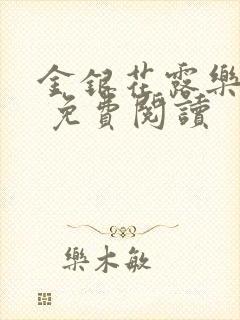 金銀花露樂
免費閱讀
樂木敏